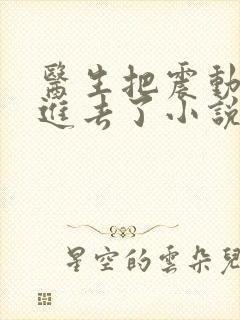 醫生把震動
進去了小說
星空的雲朵兒